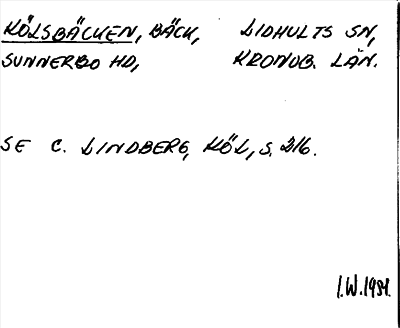 KÖLSBÄCKEN, BÄCK, LIDHULTS SN,
SUNNERBO HD, KRONOB. LÄN.
SE C. LINDBERG, KÖL, S. 216.
I.W. 1981.